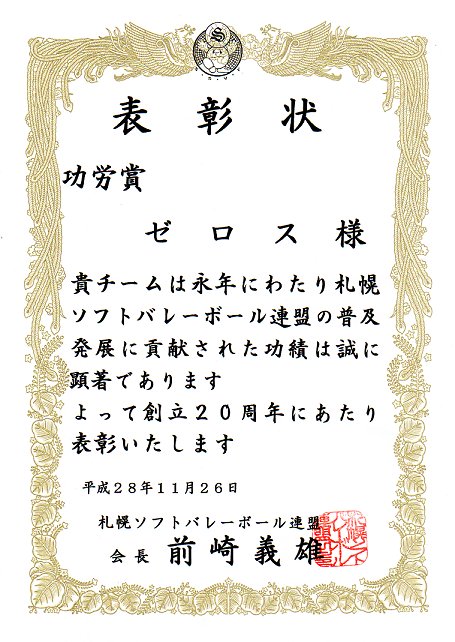 表彰状
功労賞
ゼロス様
貴チームは永年にわたり札幌
ソフトバレーボール連盟の普及
発展に貢献された功績は誠に
顕著であります
よって創立20周年にあたり
表彰いたします
平成28年11月26日
札幌ソフトバレーボール連盟
会長 前崎義雄